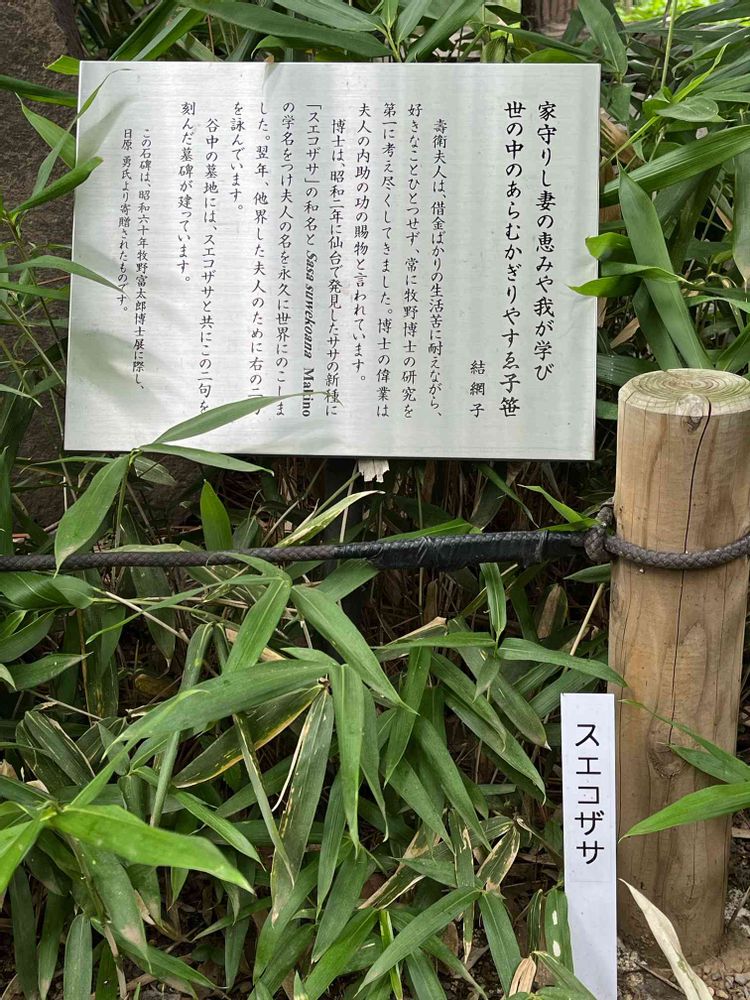 家守りし妻の恵みや我が学び
世の中のあらむかぎりやすゑ子笹
結網子
壽衛夫人は、借金ばかりの生活苦に耐えながら、
好きなことひとつせず、常に牧野博士の研究を
第一に考え尽くしてきました。博士の偉業は
夫人の内助の功の賜物と言われています。
博士は、昭和二年に仙台で発見したササの新種に
「スエコザサ」の和名と Sasa suwekoana Makino
の学名をつけ夫人の名を永久に世界にのこしま
した。翌年、他界した夫人のために右の二句
を詠んでいます。
谷中の墓地には、スエコザサと共にこの二句を
刻んだ墓碑が建っています。
この石碑は、昭和六十年牧野富太郎博士展に際し、
日原 勇氏より寄贈されたものです。
スエコザサ